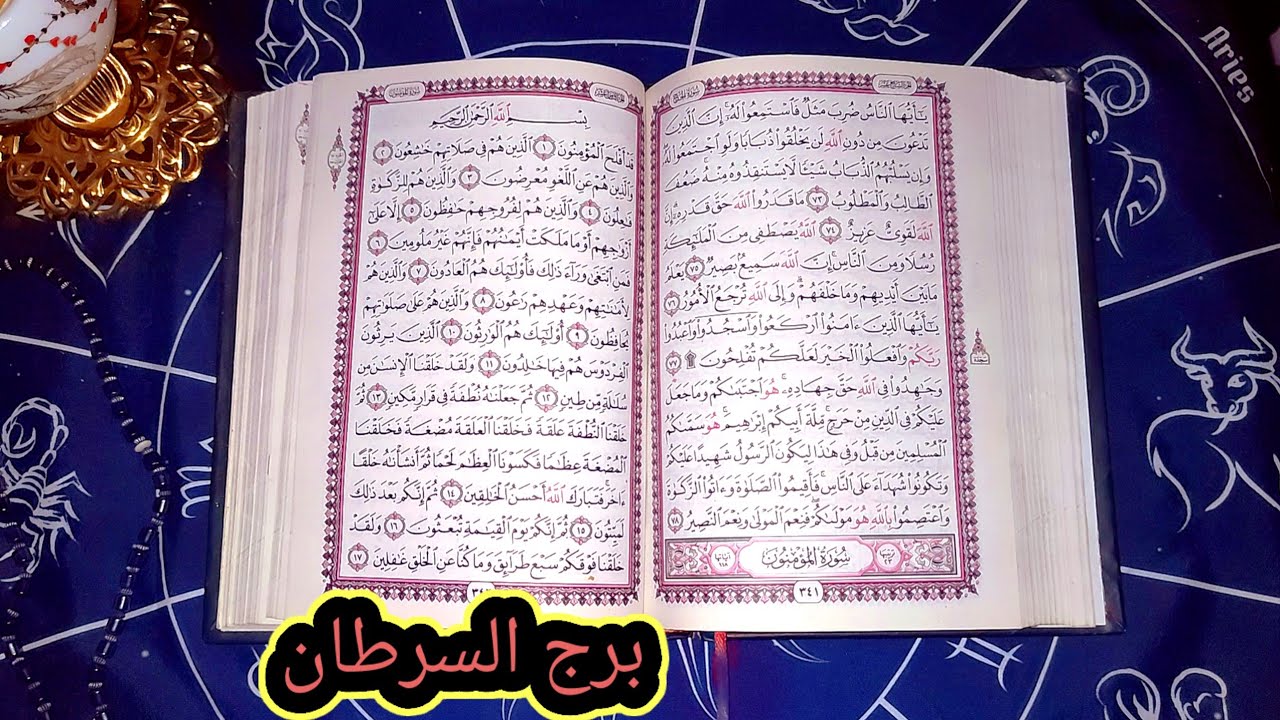 يَٰٓأَيُّهَا ٱلنَّاسُ ضُرِبَ مَثَلٌ فَٱسْتَمِعُوا۟ لَهُۥٓ ۚ إِنَّ ٱلَّذِينَ
تَدْعُونَ مِن دُونِ ٱللَّهِ لَن يَخْلُقُوا۟ ذُبَابًا وَلَوِ ٱجْتَمَعُوا۟ لَهُۥ ۖ
وَإِن يَسْلُبْهُمُ ٱلذُّبَابُ شَيْـًٔا لَّا يَسْتَنقِذُوهُ مِنْهُ ۚ ضَعُفَ
ٱلطَّالِبُ وَٱلْمَطْلُوبُ ٧٣ مَا قَدَرُوا۟ ٱللَّهَ حَقَّ قَدْرِهِۦٓ ۗ إِنَّ
ٱللَّهَ لَقَوِىٌّ عَزِيزٌ ٧٤ ٱللَّهُ يَصْطَفِى مِنَ ٱلْمَلَٰٓئِكَةِ
رُسُلًا وَمِنَ ٱلنَّاسِ ۚ إِنَّ ٱللَّهَ سَمِيعٌۢ بَصِيرٌ ٧٥ يَعْلَمُ
مَا بَيْنَ أَيْدِيهِمْ وَمَا خَلْفَهُمْ ۗ وَإِلَى ٱللَّهِ تُرْجَعُ ٱلْأُمُورُ ٧٦
يَٰٓأَيُّهَا ٱلَّذِينَ ءَامَنُوا۟ ٱرْكَعُوا۟ وَٱسْجُدُوا۟ وَٱعْبُدُوا۟
رَبَّكُمْ وَٱفْعَلُوا۟ ٱلْخَيْرَ لَعَلَّكُمْ تُفْلِحُونَ ۩ ٧٧
وَجَٰهِدُوا۟ فِى ٱللَّهِ حَقَّ جِهَادِهِۦ ۚ هُوَ ٱجْتَبَىٰكُمْ وَمَا جَعَلَ
عَلَيْكُمْ فِى ٱلدِّينِ مِنْ حَرَجٍ ۚ مِّلَّةَ أَبِيكُمْ إِبْرَٰهِيمَ ۚ هُوَ سَمَّىٰكُمُ
ٱلْمُسْلِمِينَ مِن قَبْلُ وَفِى هَٰذَا لِيَكُونَ ٱلرَّسُولُ شَهِيدًا عَلَيْكُمْ
وَتَكُونُوا۟ شُهَدَآءَ عَلَى ٱلنَّاسِ ۚ فَأَقِيمُوا۟ ٱلصَّلَوٰةَ وَءَاتُوا۟ ٱلزَّكَوٰةَ
وَٱعْتَصِمُوا۟ بِٱللَّهِ هُوَ مَوْلَىٰكُمْ ۖ فَنِعْمَ ٱلْمَوْلَىٰ وَنِعْمَ ٱلنَّصِيرُ ٧٨
سُورَةُ المُؤْمِنُونَ
٣٤١
بِسْمِ ٱللَّهِ ٱلرَّحْمَٰنِ ٱلرَّحِيمِ
قَدْ أَفْلَحَ ٱلْمُؤْمِنُونَ ١ ٱلَّذِينَ هُمْ فِى صَلَاتِهِمْ خَٰشِعُونَ ٢
وَٱلَّذِينَ هُمْ عَنِ ٱللَّغْوِ مُعْرِضُونَ ٣ وَٱلَّذِينَ هُمْ لِلزَّكَوٰةِ
فَٰعِلُونَ ٤ وَٱلَّذِينَ هُمْ لِفُرُوجِهِمْ حَٰفِظُونَ ٥ إِلَّا عَلَىٰٓ
أَزْوَٰجِهِمْ أَوْ مَا مَلَكَتْ أَيْمَٰنُهُمْ فَإِنَّهُمْ غَيْرُ مَلُومِينَ ٦
فَمَنِ ٱبْتَغَىٰ وَرَآءَ ذَٰلِكَ فَأُو۟لَٰٓئِكَ هُمُ ٱلْعَادُونَ ٧ وَٱلَّذِينَ هُمْ
لِأَمَٰنَٰتِهِمْ وَعَهْدِهِمْ رَٰعُونَ ٨ وَٱلَّذِينَ هُمْ عَلَىٰ صَلَوَٰتِهِمْ
يُحَافِظُونَ ٩ أُو۟لَٰٓئِكَ هُمُ ٱلْوَٰرِثُونَ ١٠ ٱلَّذِينَ يَرِثُونَ
ٱلْفِرْدَوْسَ هُمْ فِيهَا خَٰلِدُونَ ١١ وَلَقَدْ خَلَقْنَا ٱلْإِنسَٰنَ مِن
سُلَٰلَةٍ مِّن طِينٍ ١٢ ثُمَّ جَعَلْنَٰهُ نُطْفَةً فِى قَرَارٍ مَّكِينٍ ١٣ ثُمَّ
خَلَقْنَا ٱلنُّطْفَةَ عَلَقَةً فَخَلَقْنَا ٱلْعَلَقَةَ مُضْغَةً فَخَلَقْنَا
ٱلْمُضْغَةَ عِظَٰمًا فَكَسَوْنَا ٱلْعِظَٰمَ لَحْمًا ثُمَّ أَنشَأْنَٰهُ خَلْقًا
ءَاخَرَ ۚ فَتَبَارَكَ ٱللَّهُ أَحْسَنُ ٱلْخَٰلِقِينَ ١٤ ثُمَّ إِنَّكُم بَعْدَ ذَٰلِكَ
لَمَيِّتُونَ ١٥ ثُمَّ إِنَّكُمْ يَوْمَ ٱلْقِيَٰمَةِ تُبْعَثُونَ ١٦ وَلَقَدْ
خَلَقْنَا فَوْقَكُمْ سَبْعَ طَرَآئِقَ وَمَا كُنَّا عَنِ ٱلْخَلْقِ غَٰفِلِينَ ١٧
برج السرطان
Aries